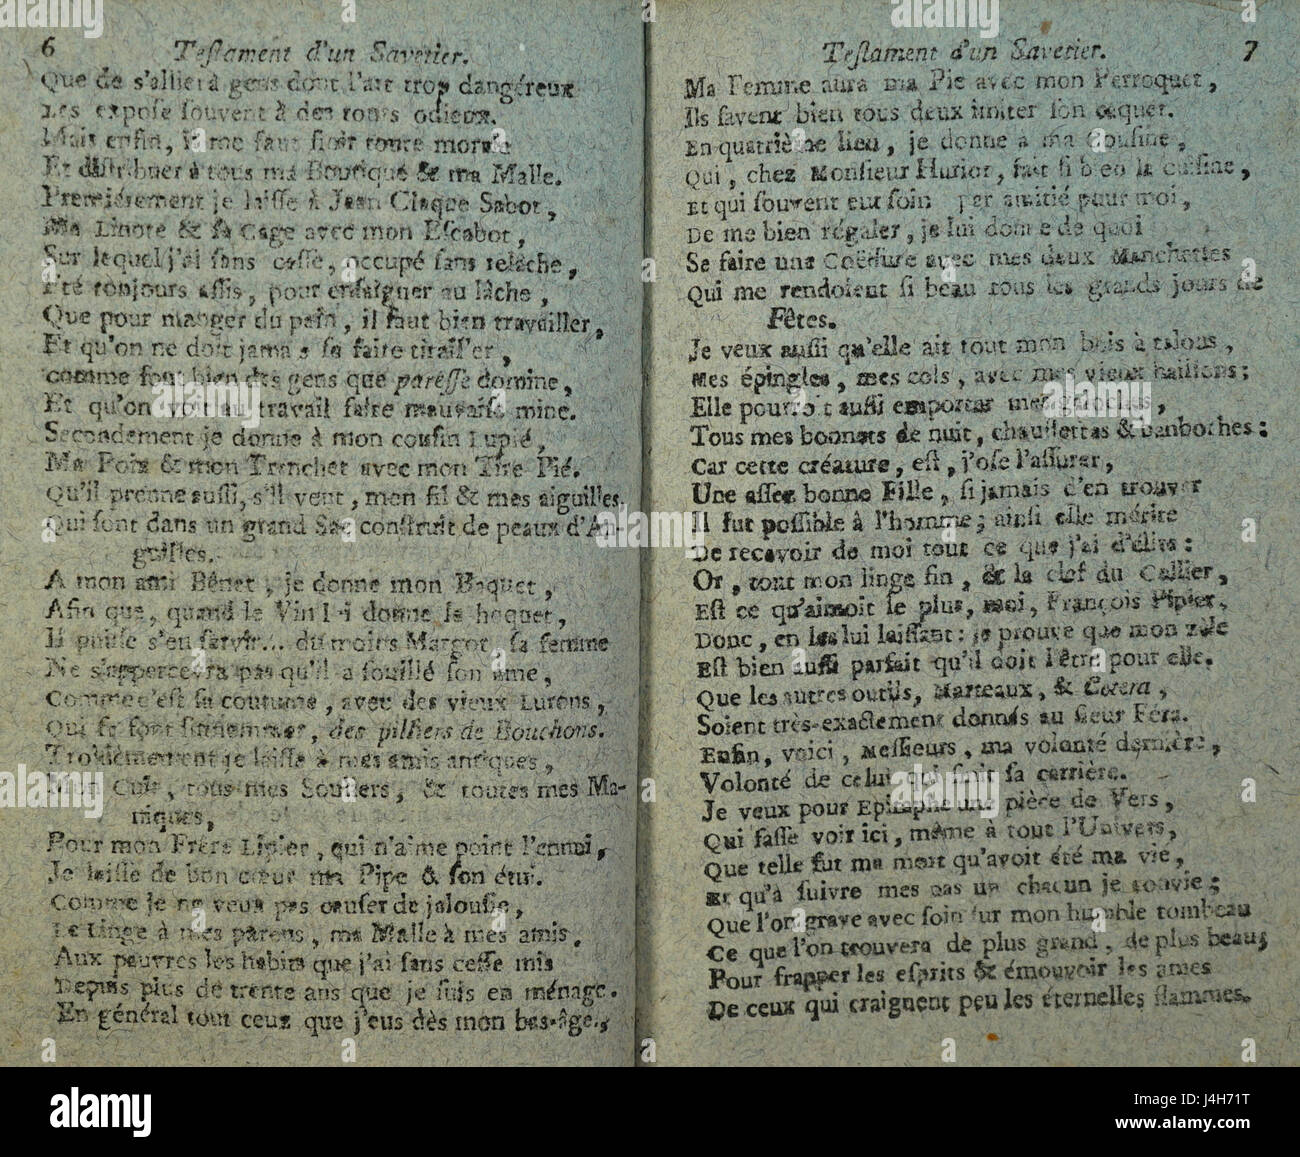 6 Testament d'un Savetier.
Que de s'allier à gens dont l'art trop dangéreux
Les expose souvent à des tours odieux.
Mais enfin, il me faut finir toute morale
Et distribuer à tous ma Boutique & ma Malle.
Premiérement je laisse à Jean Claque Sabot,
Ma Linote & sa Cage avec mon Escabot,
Sur lequel j'ai sans cesse, occupé sans relâche,
Été toujours assis, pour enseigner au lâche,
Que pour manger du pain, il faut bien travailler,
Et qu'on ne doit jamais se faire tirailler,
comme font bien des gens que paresse domine,
Et qu'on voit au travail faire mauvaise mine.
Secondement je donne à mon cousin Lupié,
Ma Poix & mon Trenchet avec mon Tire Pié.
Qu'il prenne aussi, s'il veut, mon fil & mes aiguilles.
Qui sont dans un grand Sac construit de peaux d'An-
guilles.
A mon ami Bénet, je donne mon Baquet,
Afin que, quand le Vin lui donne le hoquet,
Il puisse s'en servir... du moins Margot, sa femme
Ne s'appercevra pas qu'il a souillé son ame,
Comme c'est sa coutume, avec des vieux Lurons,
Qui se font surnommer, des pilliers de Bouchons.
Troisiémement je laisse à mes amis antiques,
Mon Cuir, tous mes Souliers, & toutes mes Ma-
niques,
Pour mon Frère Lipier, qui n'aime point l'ennui,
Je laisse de bon cœur ma Pipe & son étui.
Comme je ne veux pas causer de jalousie,
Le Linge à mes parens, ma Malle à mes amis,
Aux pauvres les habits que j'ai sans cesse mis
Depuis plus de trente ans que je suis en ménage.
En général tout ceux que j'eus dès mon bas-âge,
Testament d'un Savetier. 7
Ma Femme aura ma Pie avec mon Perroquet,
Ils savent bien tous deux imiter son caquet.
En quatrième lieu, je donne à ma Cousine,
Qui, chez Monsieur Huriot, fait si bien la cuisine,
Et qui souvent eut soin par amitié pour moi,
De me bien régaler, je lui donne de quoi
Se faire une Coëffure avec mes deux Manchettes
Qui me rendoient si beau tous les grands jours de
Fêtes.
Je veux aussi qu'elle ait tout mon bois à talons,
Mes épingles, mes cols, avec mes vieux haillons;
Elle pourroit aussi emporter mes galoches,
Tous mes bonnets de nuit, chaussettes & banboches;
Car cette créature, est, j'ose l'assurer,
Une assez bonne Fille, si jamais d'en trouver
Il fut possible à l'homme; ainsi elle mérite
De recevoir de moi tout ce que j'ai d'élite:
Or, tout mon linge fin, & la clef du Cellier,
Est ce qu'aimoit le plus, moi, François Pipier,
Donc, en les lui laissant: je prouve que mon zèle
Est bien aussi parfait qu'il doit l'être pour elle.
Que les autres outils, Marteaux, & Cœtera,
Soient très-exactement donnés au sieur Féra.
Enfin, voici, Messieurs, ma volonté dernière,
Volonté de celui qui finit sa carrière.
Je veux pour Epitaphe une pièce de Vers,
Qui fasse voir ici, même à tout l'Univers,
Que telle fut ma mort qu'avoit été ma vie,
Et qu'à suivre mes pas un chacun je convie;
Que l'on grave avec soin sur mon humble tombeau
Ce que l'on trouvera de plus grand, de plus beau,
Pour frapper les esprits & émouvoir les ames
De ceux qui craignent peu les éternelles flammes.
alamy
Image ID: J4H71T
www.alamy.com